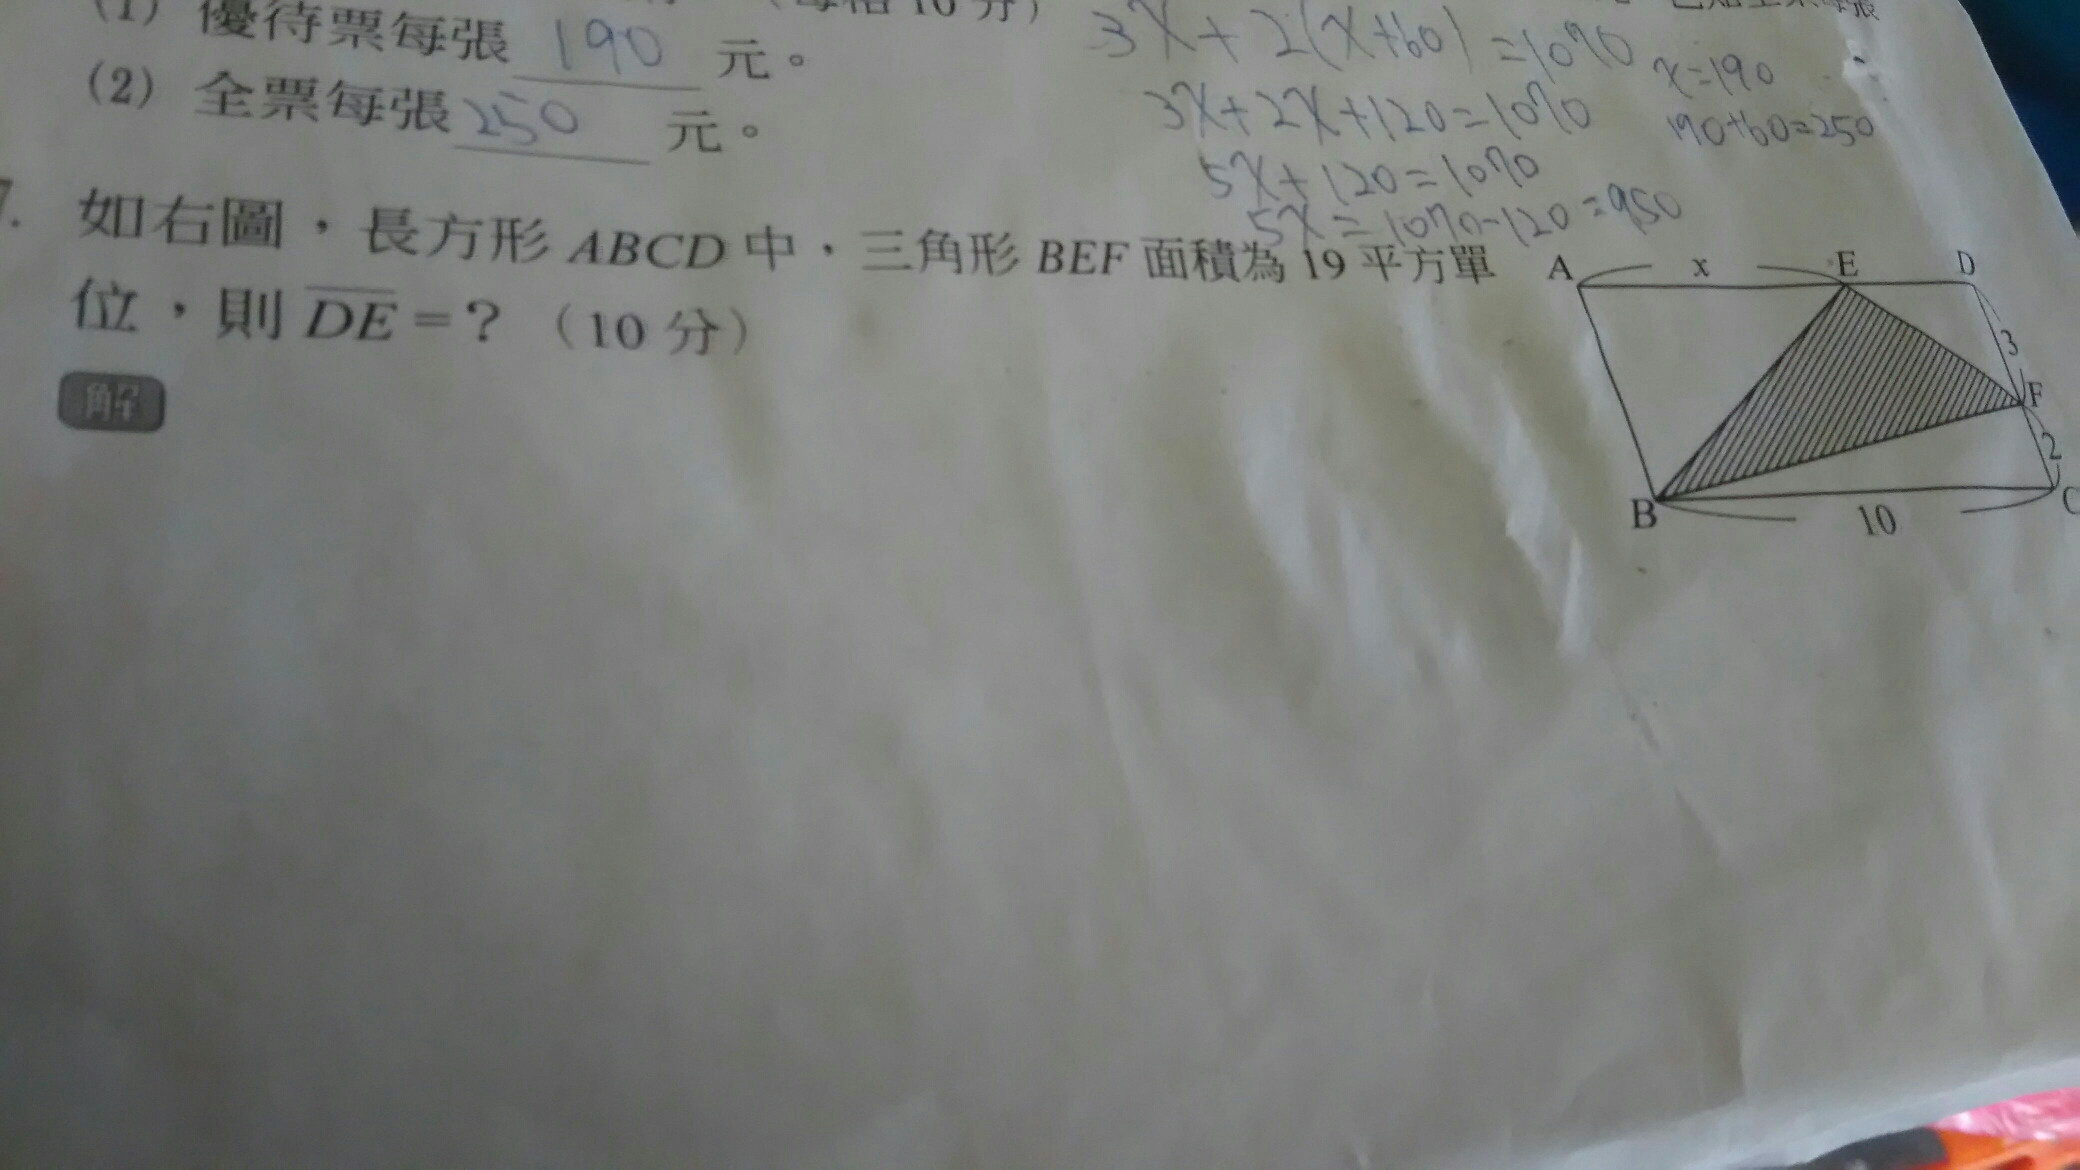 (1) 優待票每張 190 元。
(2) 全票每張 250 元。
3x+2(x+60)=1070
3x+2x+120=1070
5x+120=1070
5x=1070-120=950
x=190
190+60=250
7. 如右圖，長方形 ABCD 中，三角形 BEF 面積為 19 平方單
位，則 DE =？（10 分）
解
A x E D
3
F
2
B 10 C